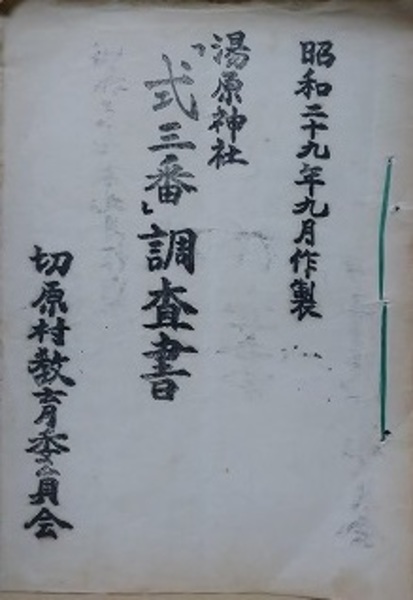 昭和二十九年九月作製
湯原神社
「式三番」調査書
切原村教育委員会